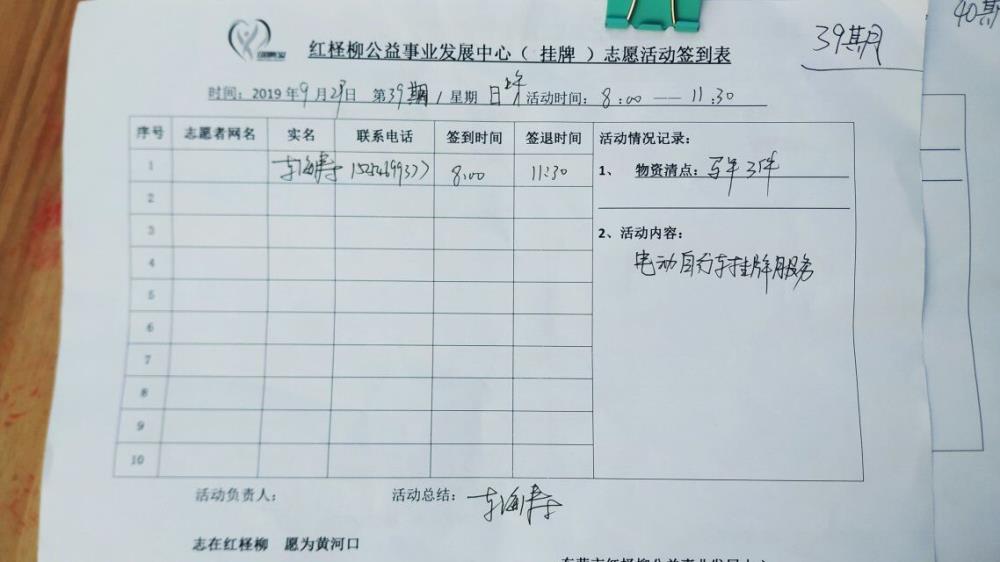 39期
40期
红柽柳公益事业发展中心（ 挂牌 ）志愿活动签到表
时间：2019年9月2 日 第39期/星期 日上午 活动时间：8:00 — 11:30
序号 志愿者网名 实名 联系电话 签到时间 签退时间
1 8:00 11:30
2
3
4
5
6
7
8
9
10
活动情况记录：
1、 物资清点：马甲3件
2、活动内容：
电动自行车挂牌服务
活动负责人：
活动总结：
志在红柽柳 愿为黄河口
东营市红柽柳公益事业发展中心